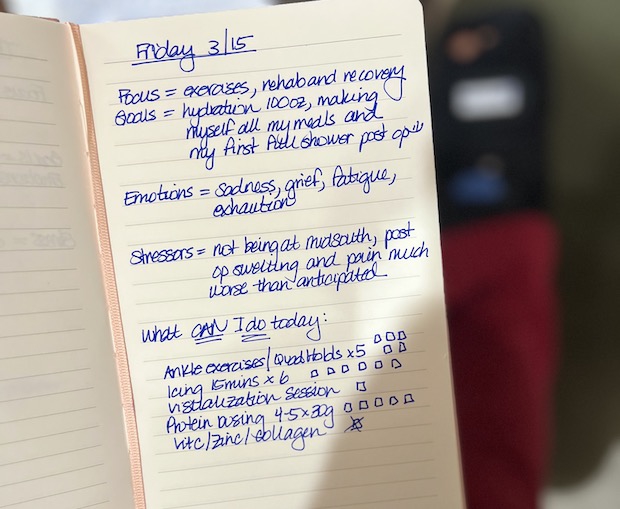 Friday 3/15
Focus = exercises, rehab and recovery
Goals = hydration 100oz, making
myself all my meals and
my first full shower post op
Emotions = Sadness, grief, fatigue,
exhaution
Stressors = not being at midsouth, post
op swelling and pain much
worse than anticipated
What CAN I do today:
Ankle exercises/Quad Holds x5
Icing 15mins x 6
Visualization Session
Protein Dosing 4-5x30g
Vitc/Zinc/collagen